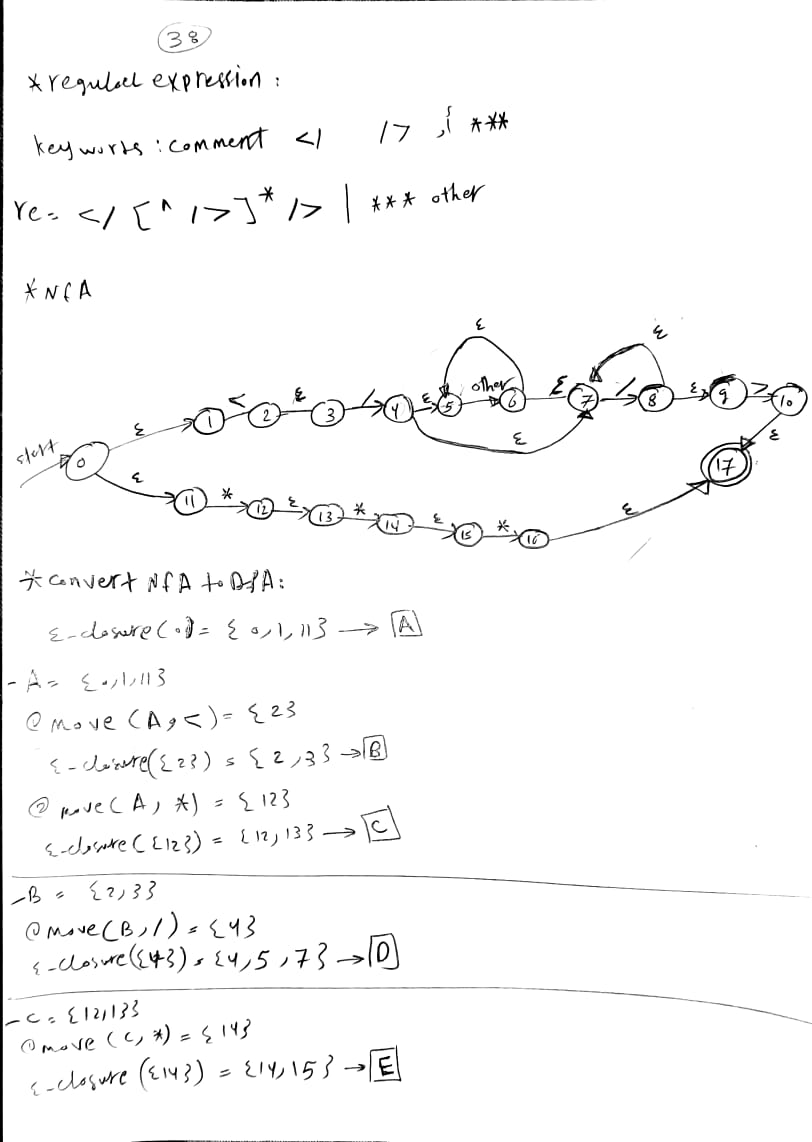 38
* regulael expression :
keyworts : comment </ /> ,{ ***
re = </ [^ />]* /> | *** other
* NFA
ε
ε
other
< ε / ε ε / ε >
1 2 3 4 5 6 7 8 9 10
ε
ε
ε
start
0
17
ε
11 * 12 ε 13 * 14 ε 15 * 16
ε
* convert NFA to DFA:
ε-closure(0) = {0,1,11} → A
- A = {0,1,11}
@ move (A, <) = {2}
ε-closure({2}) = {2,3} → B
@ move (A, *) = {12}
ε-closure({12}) = {12,13} → C
- B = {2,3}
@ move (B, /) = {4}
ε-closure({4}) = {4,5,7} → D
- C = {12,13}
@ move (C, *) = {14}
ε-closure ({14}) = {14,15} → E